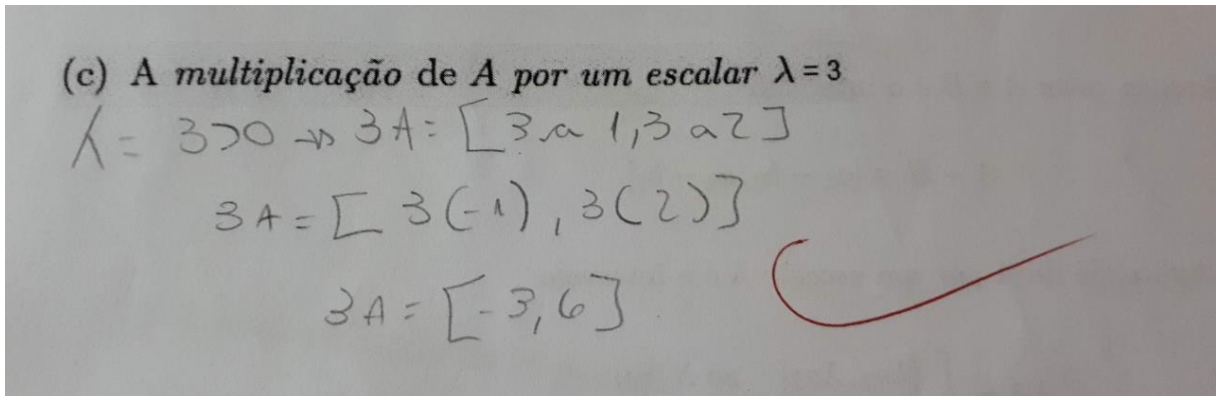 (c) A multiplicação de A por um escalar λ = 3
λ = 3>0 → 3A = [3 a 1, 3 a 2]
3A = [ 3(-1), 3(2)]
3A = [-3, 6]